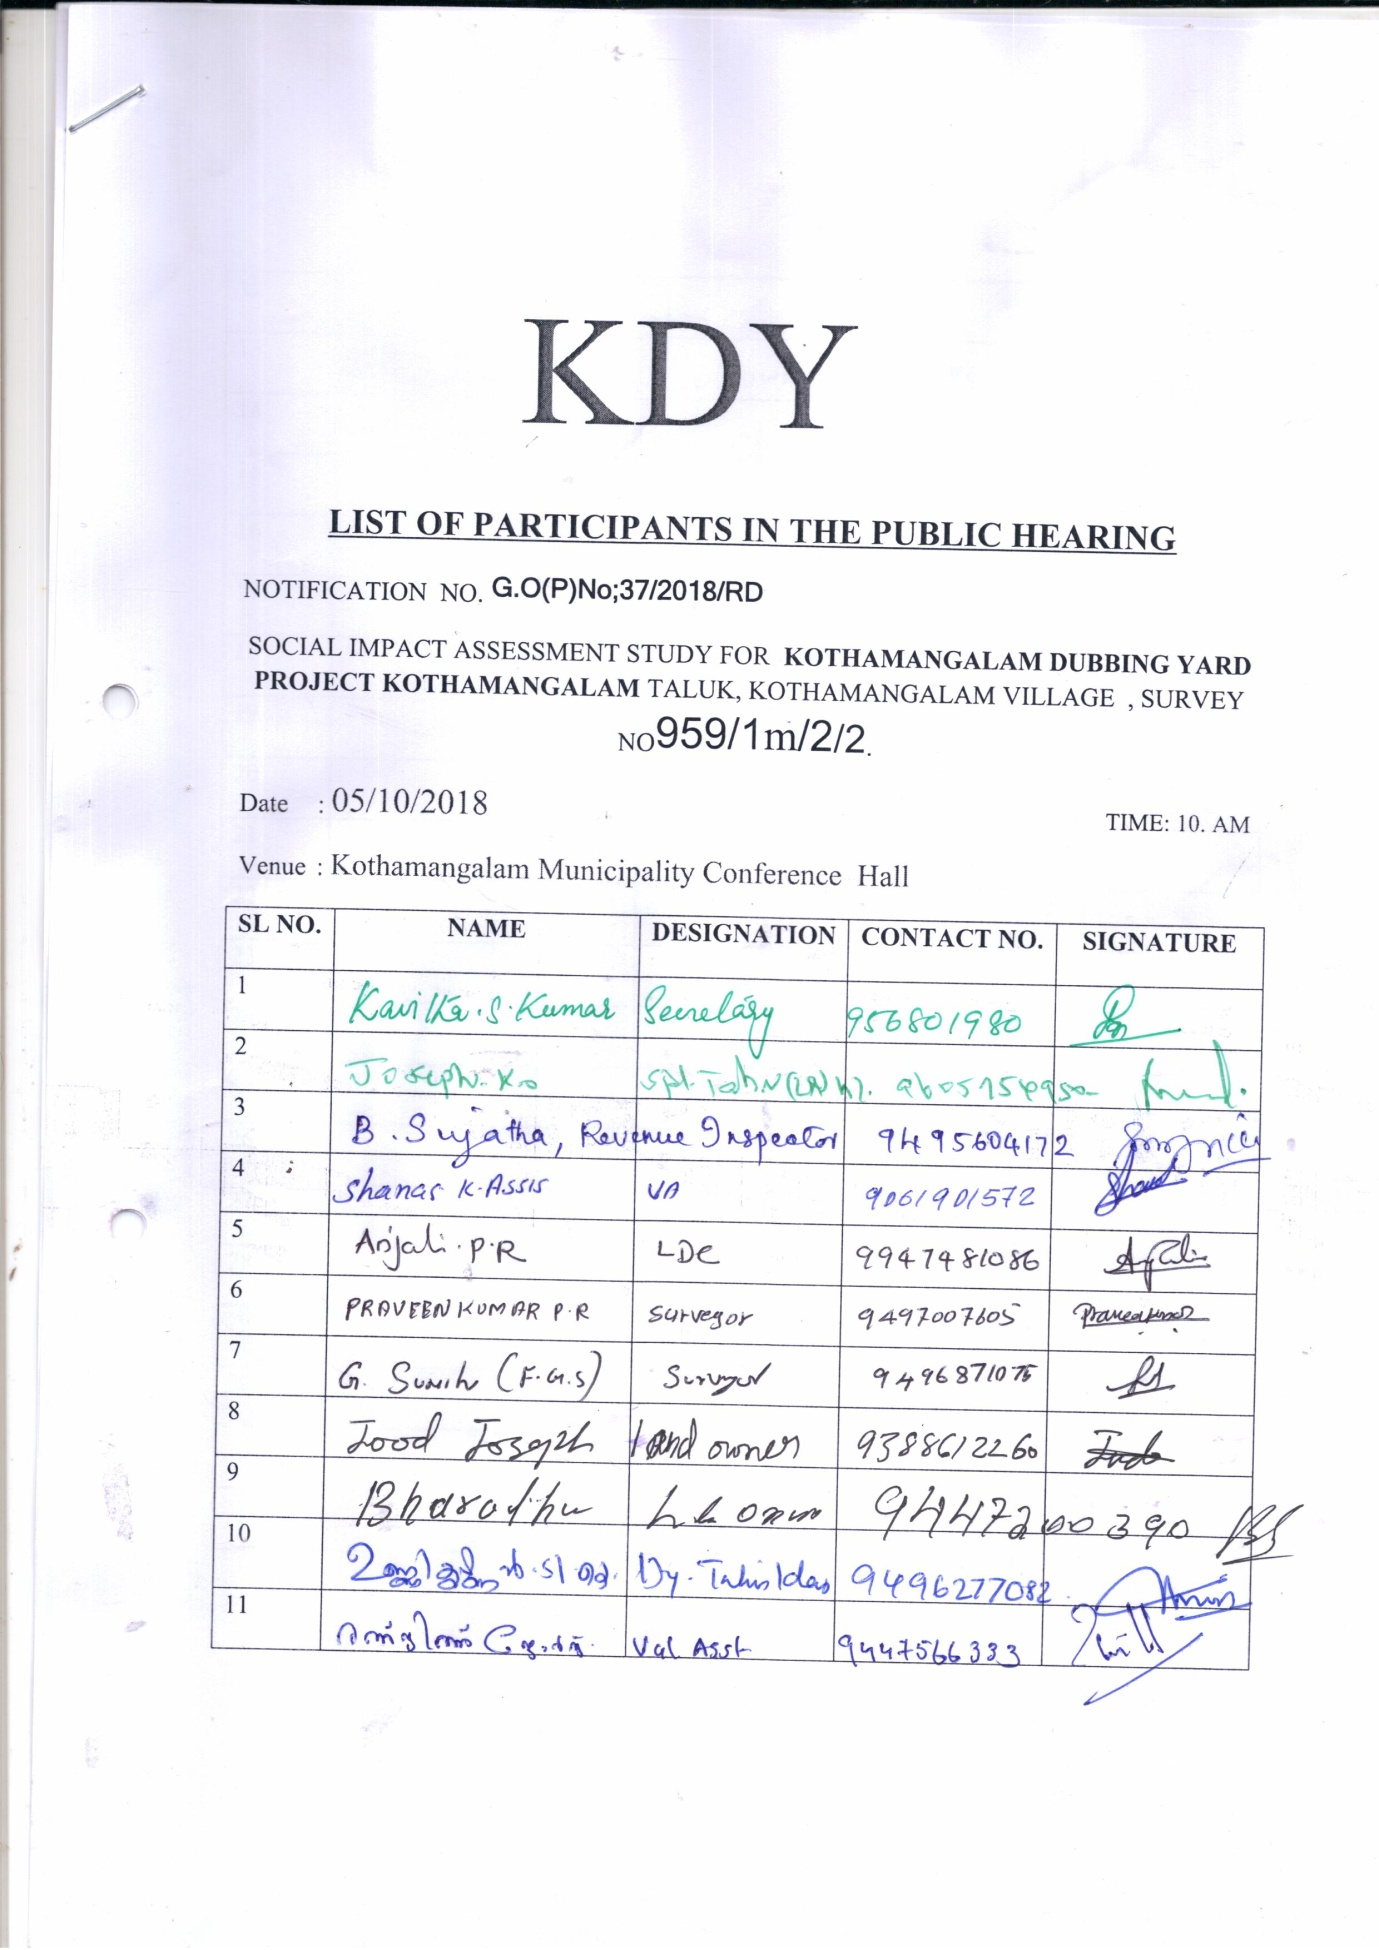 KDY
LIST OF PARTICIPANTS IN THE PUBLIC HEARING
NOTIFICATION NO. G.O(P)No;37/2018/RD
SOCIAL IMPACT ASSESSMENT STUDY FOR KOTHAMANGALAM DUBBING YARD
PROJECT KOTHAMANGALAM TALUK, KOTHAMANGALAM VILLAGE , SURVEY
NO959/1m/2/2.
Date : 05/10/2018
TIME: 10. AM
Venue : Kothamangalam Municipality Conference Hall
SL NO. NAME DESIGNATION CONTACT NO. SIGNATURE
1 Kavitha.S.Kumar Secretary 956801980
2 Joseph.
3 B. Sujatha, Revenue Inspector 9495604172
4 Shanas K.Assis VA 9061901572
5 Anjali.P.R LDC 9947481086
6 PRAVEENKUMAR P.R Surveyor 9497007605
7 G. (F.G.S) Surveyor 9496871075
8 Jood Joseph land owner 9388612260
9
10 Dy. Tahsildar 9496277082
11 Val Asst 9447566333